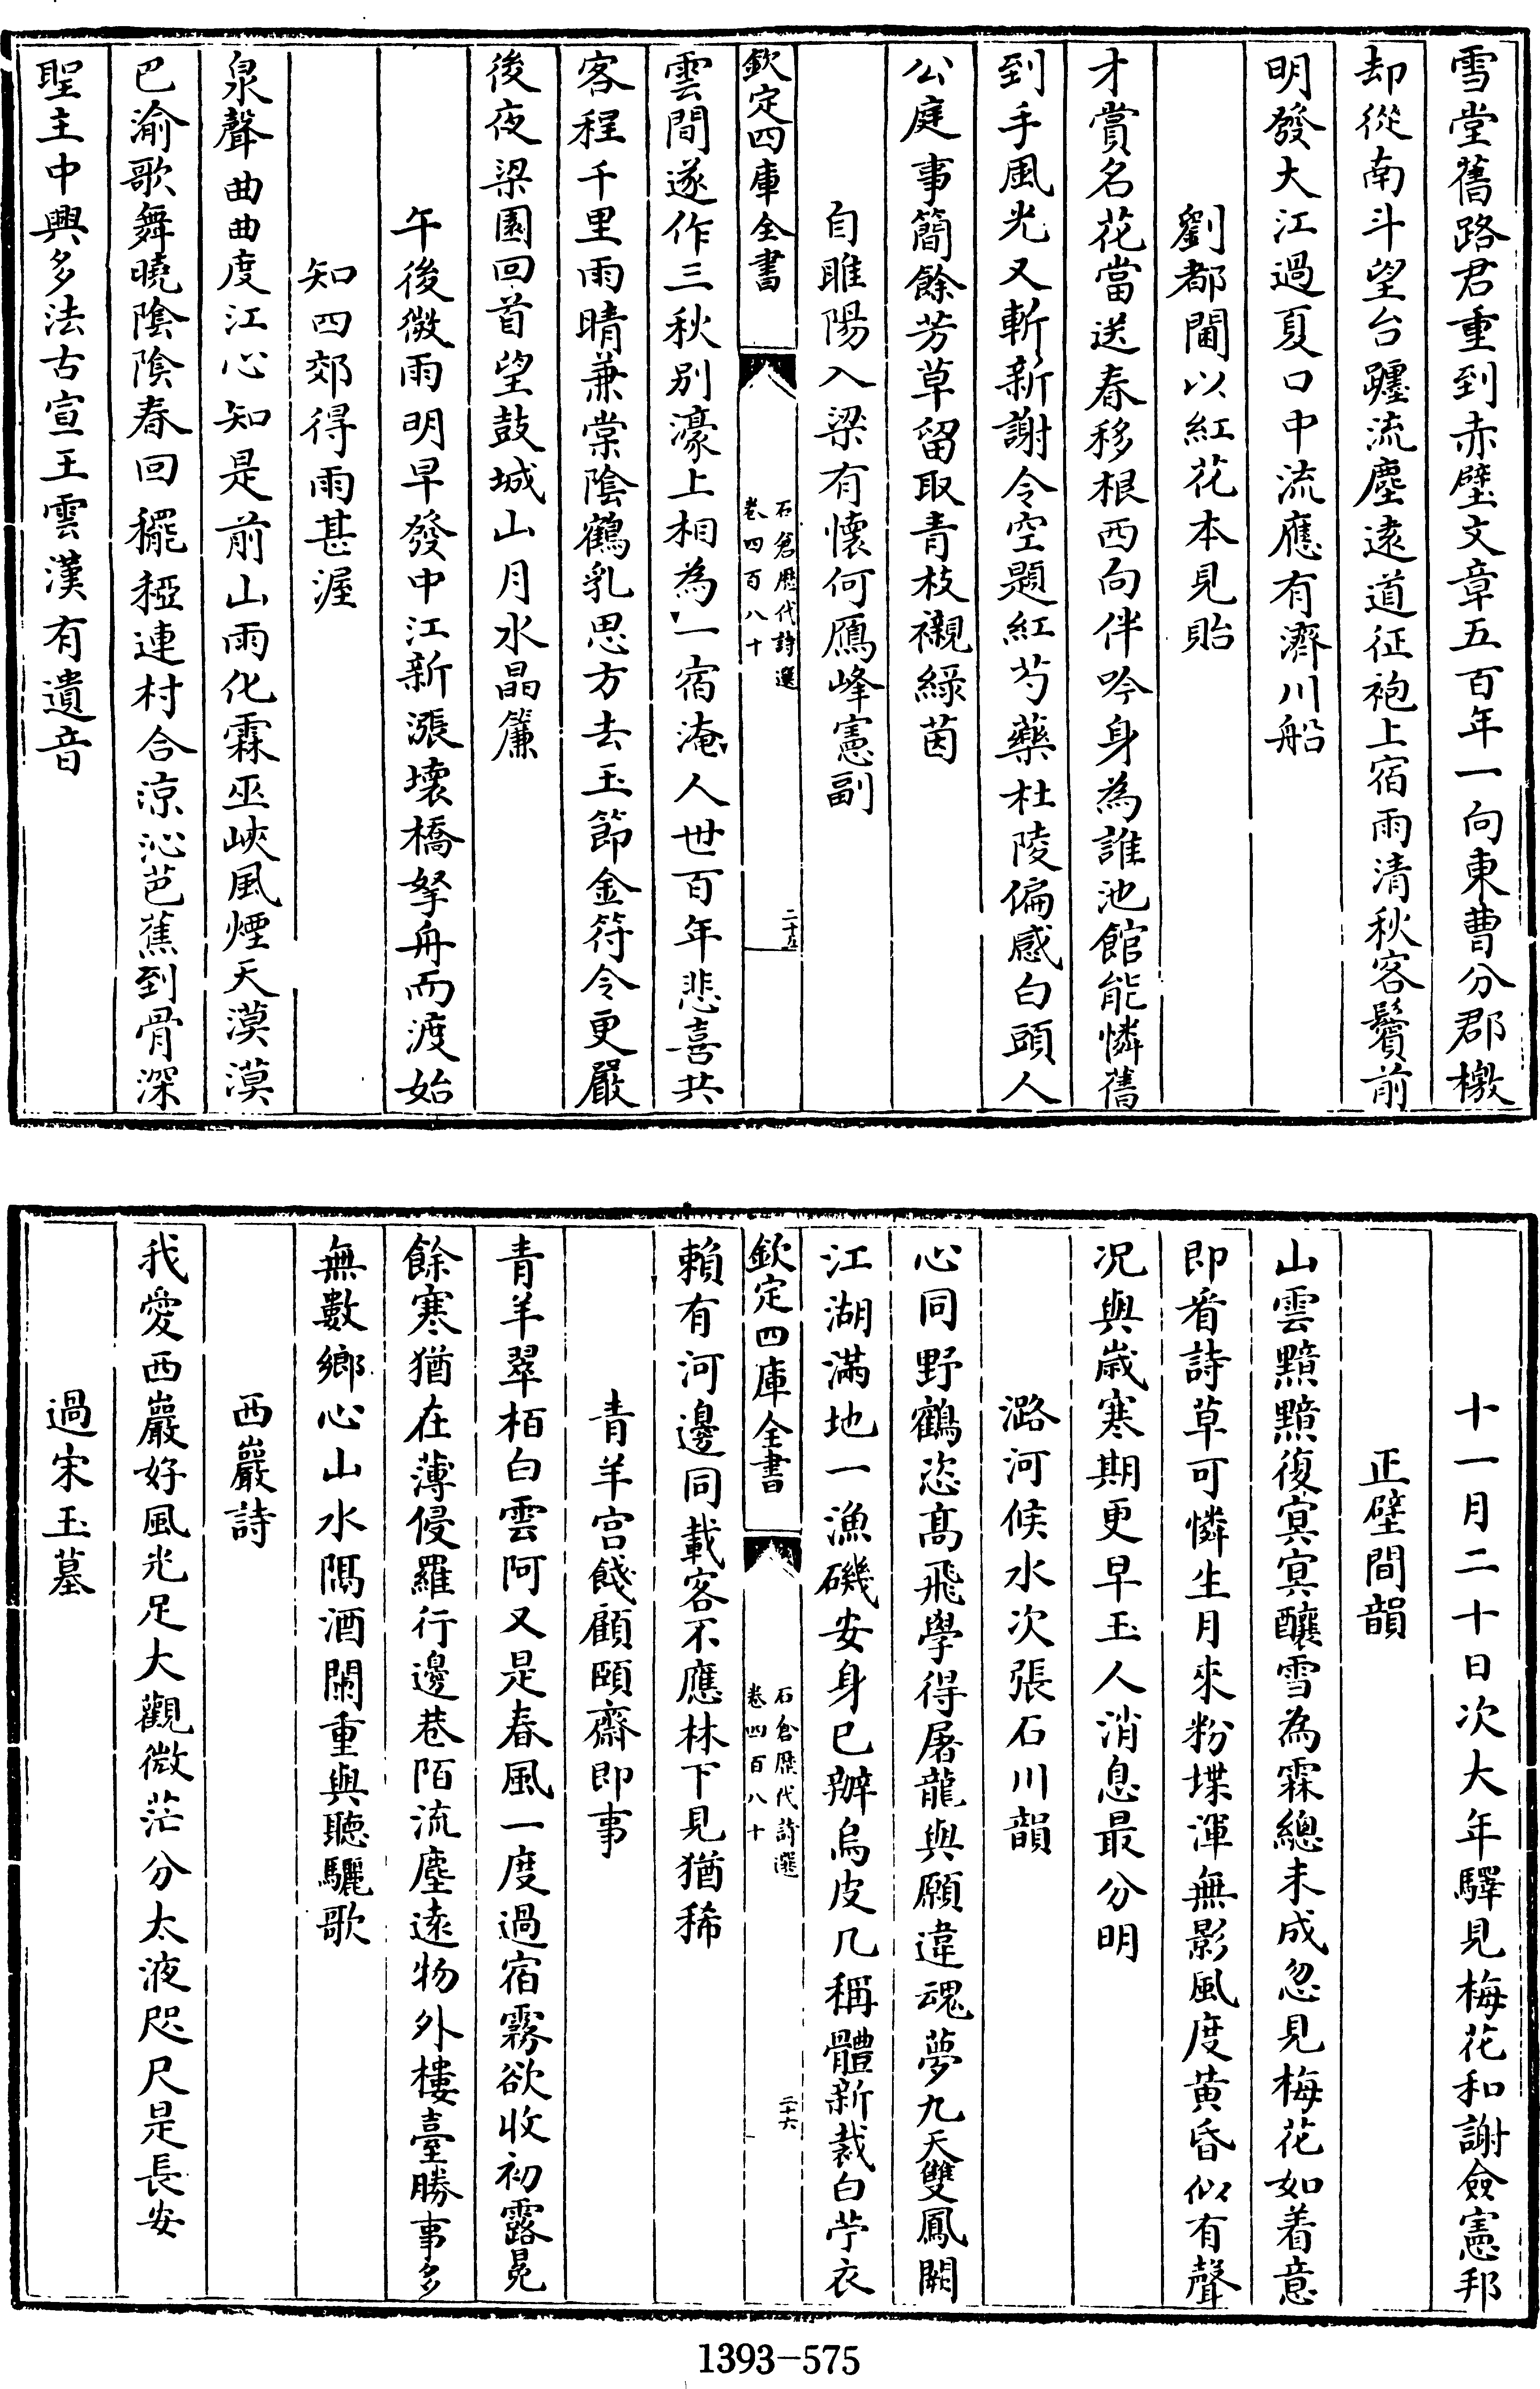 雪堂舊路君重到赤壁文章五百年一向東曹分郡檄
却從南斗望台躔流塵逺道征袍上宿雨清秋客鬢前
明發大江過夏口中流應有濟川船
劉都閫以紅花本見貽
才賞名花當送春移根西向伴吟身為誰池館能憐舊
到手風光又斬新謝令空題紅芍藥杜陵偏感白頭人
公庭事簡餘芳草留取青枝襯緑茵
自睢陽入梁有懷何鴈峰憲副
欽定四庫全書
石倉歴代詩選
卷四百八十
二十五
雲間遂作三秋别濠上相為一宿淹人世百年悲喜共
客程千里雨晴兼棠隂鶴乳思方去玉節金符令更嚴
後夜梁園回首望鼓城山月水晶簾
午後微雨明早發中江新漲壊橋拏舟而渡始
知四郊得雨甚渥
泉聲曲曲度江心知是前山雨化霖巫峽風煙天漠漠
巴渝歌舞曉隂隂春回䆉稏連村合涼沁芭蕉到骨深
聖主中興多法古宣王雲漢有遺音
十一月二十日次大年驛見梅花和謝僉憲邦
正壁間韻
山雲黯黯復㝠㝠釀雪為霖總未成忽見梅花如着意
即看詩草可憐生月來粉堞渾無影風度黄昏似有聲
况與嵗寒期更早玉人消息最分明
潞河候水次張石川韻
心同野鶴恣髙飛學得屠龍與願違魂夢九天雙鳳闕
江湖滿地一漁磯安身已辦烏皮几稱體新裁白苧衣
欽定四庫全書
石倉歴代詩選
卷四百八十
二十六
賴有河邊同載客不應林下見猶稀
青羊宫餞顧頤齋即事
青羊翠栢白雲阿又是春風一度過宿霧欲收初露冕
餘寒猶在薄侵羅行邊巷陌流塵逺物外樓臺勝事多
無數鄉心山水隅酒闌重與聽驪歌
西巖詩
我愛西巖好風光足大觀微茫分太液咫尺是長安
過宋玉墓
1393-575